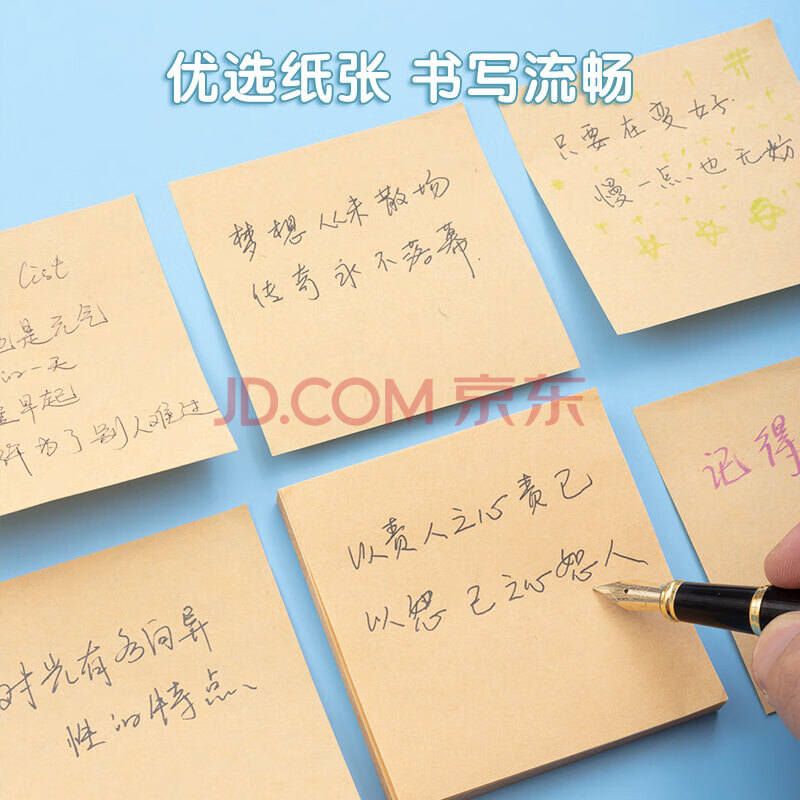 优选纸张 书写流畅
只要在变好
慢一点也无妨
梦想从未散场
传奇永不落幕
list
是元气
的一天
早起
许为了别人难过
JD.COM 京东
记得
以责人之心责己
以恕己之心恕人
时光有多向异
性的特点